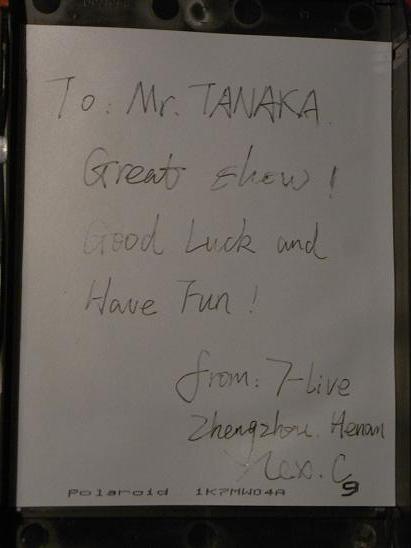 To: Mr. TANAKA.
Great show!
Good Luck and
Have Fun!
from: 7-Live
Zhengzhou. Henan
C
Polaroid 1K7MW04A 9